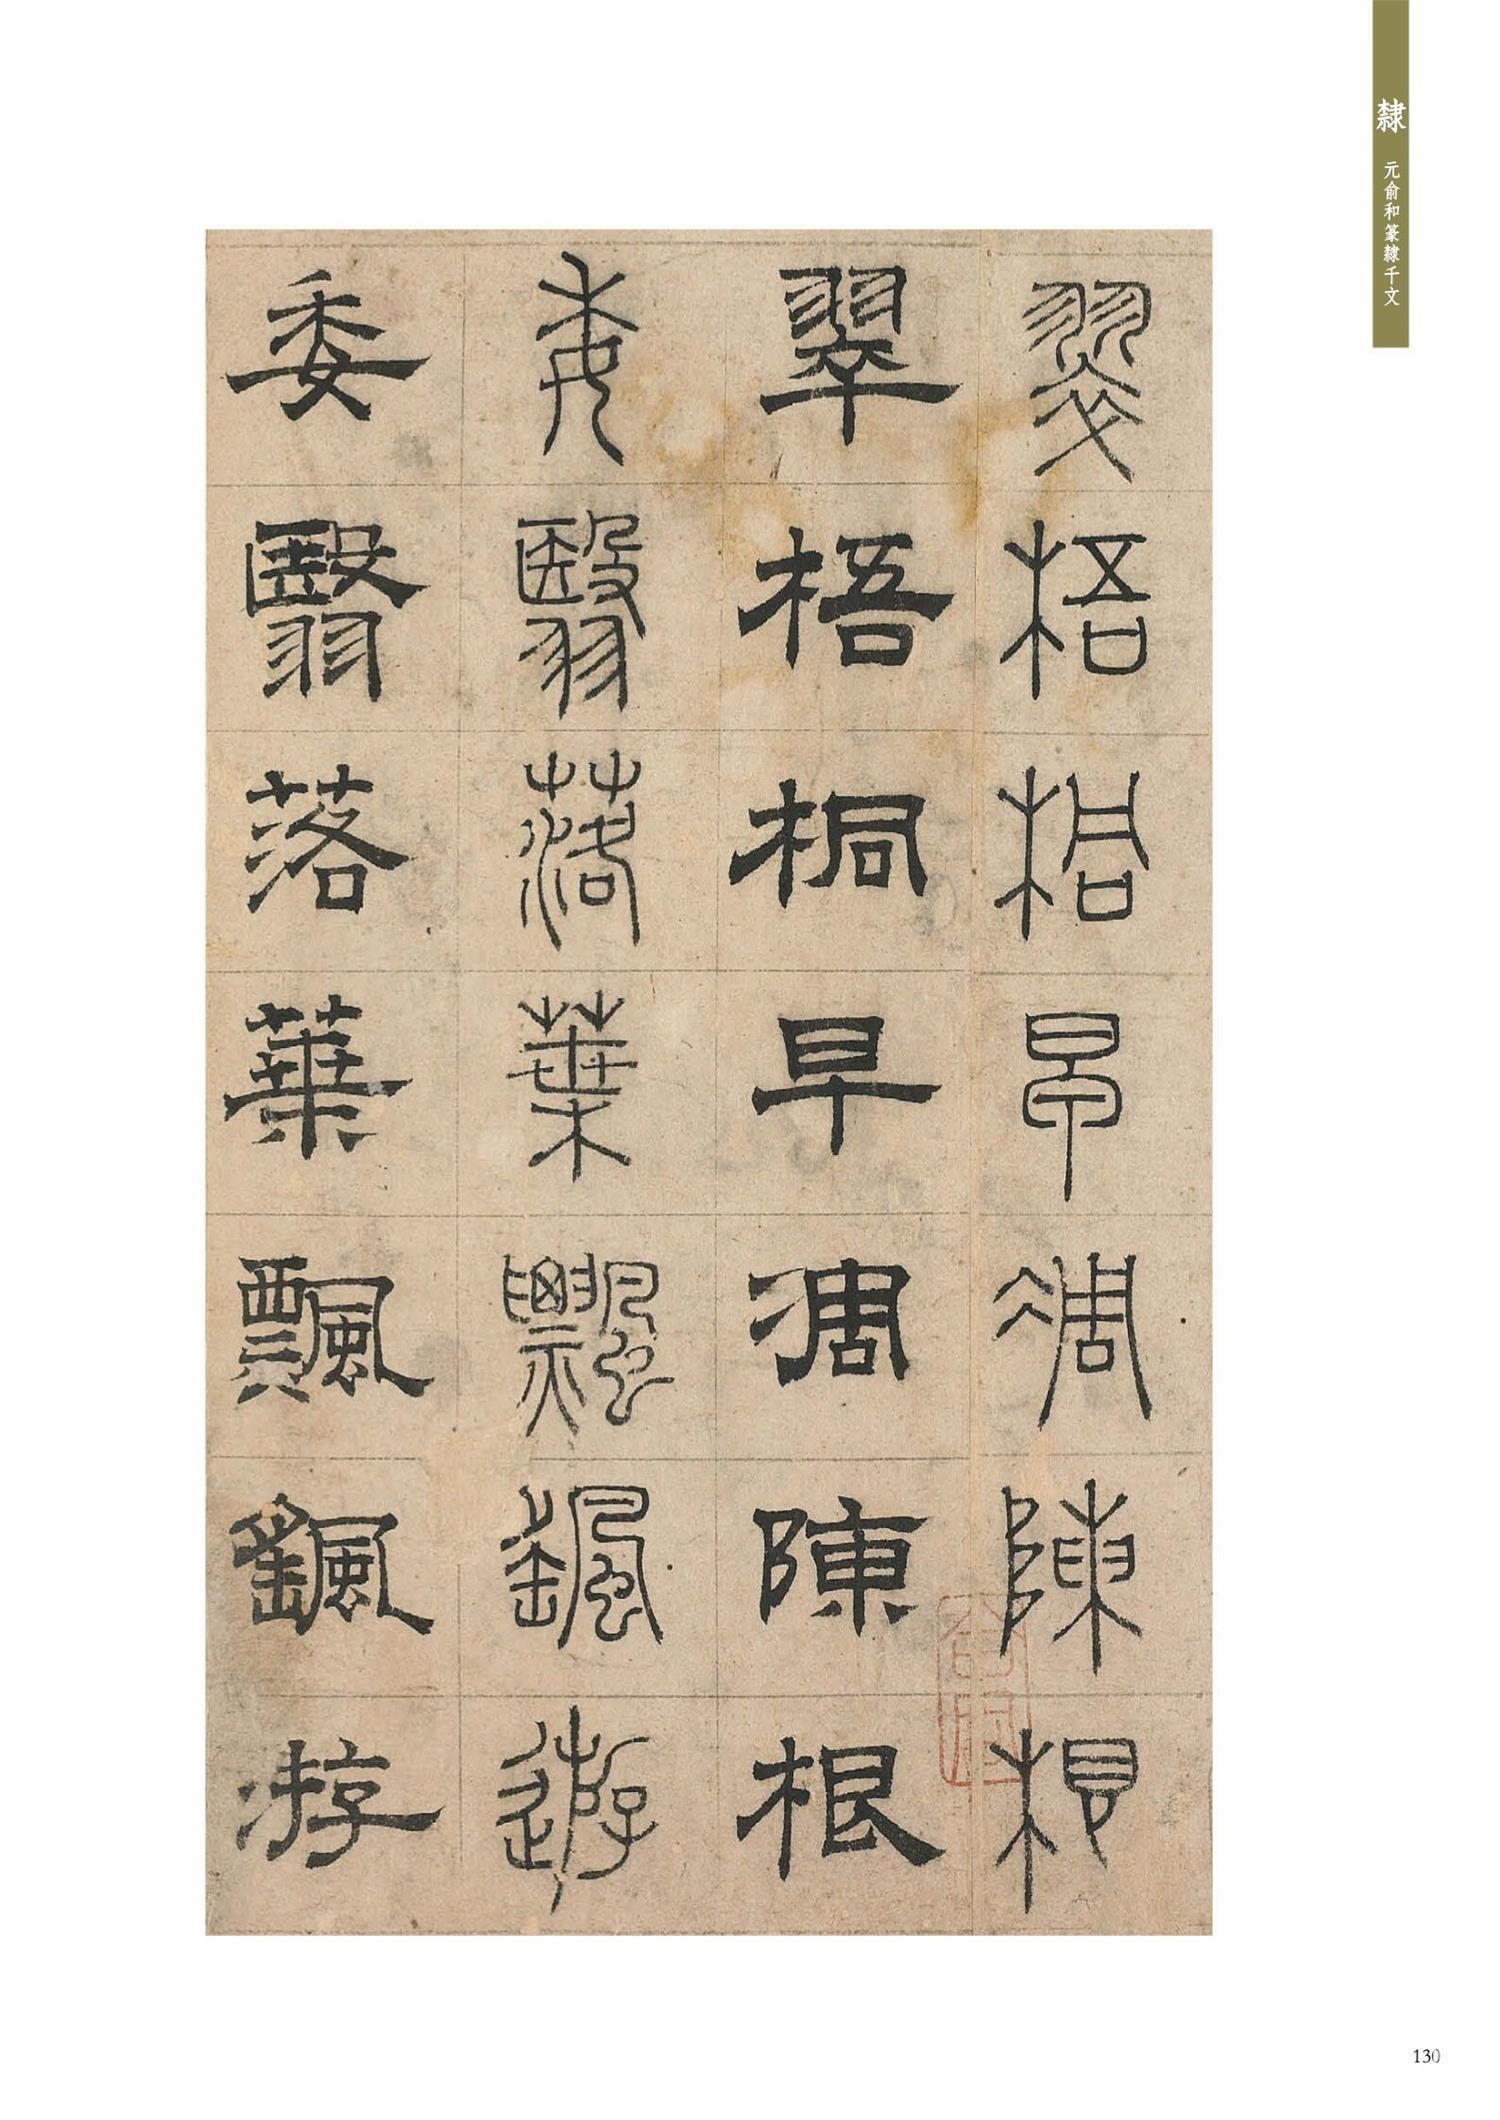 隸
元俞和篆隸千文
翠梧桐早凋陳根
翠梧桐早凋陳根
委翳落葉飄颻遊
委翳落葉飄颻游
130